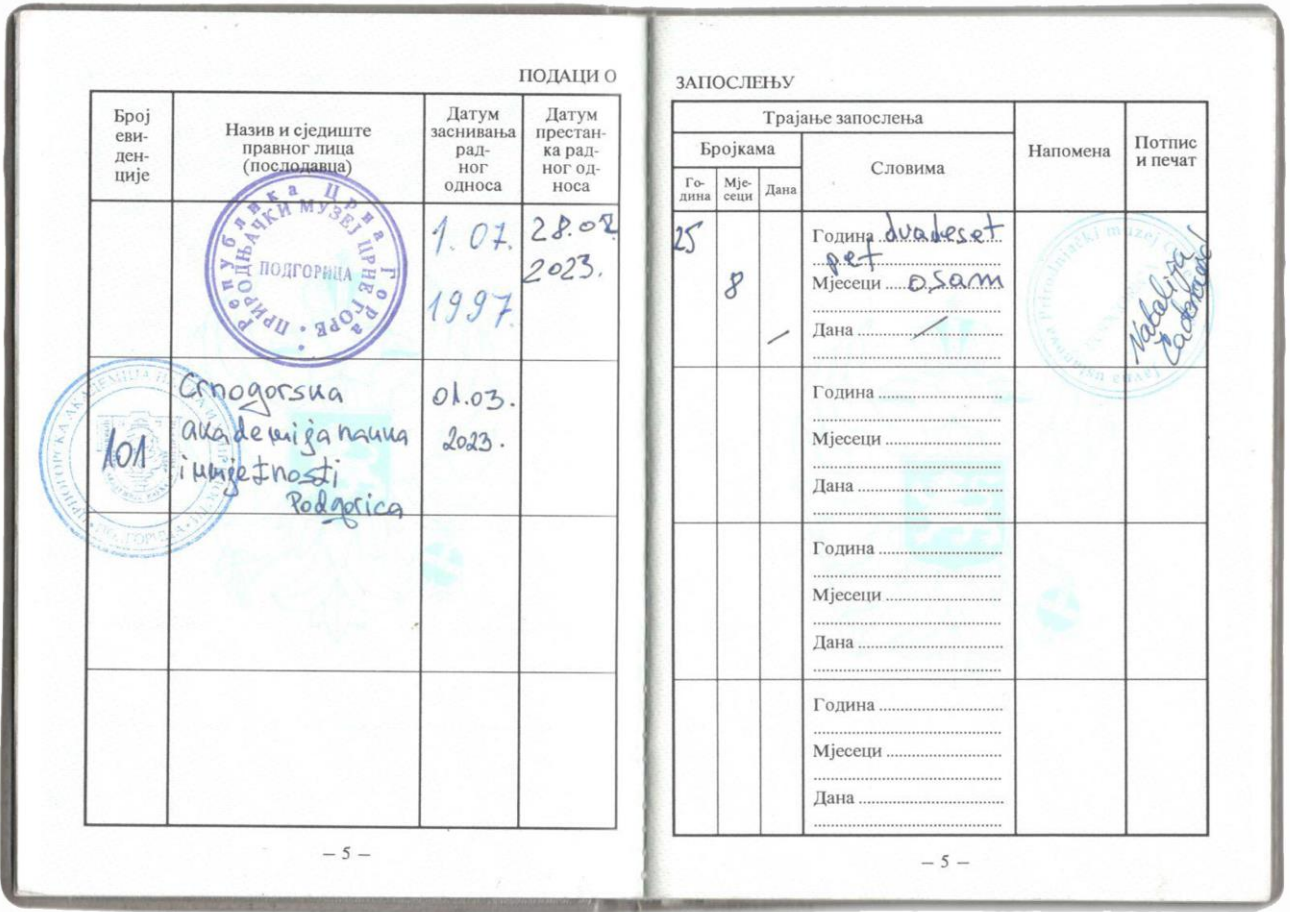 ПОДАЦИ О
Број
еви-
ден-
ције
Назив и сједиште
правног лица
(послодавца)
Датум
заснивања
рад-
ног
односа
Датум
престан-
ка рад-
ног од-
носа
Република Црна Гора
ПРИРОДЊАЧКИ МУЗЕЈ ЦРНЕ ГОРЕ
ПОДГОРИЦА
1.07.
1997.
28.02
2023.
101
Crnogorska
akademija nauka
i umjetnosti
Podgorica
01.03.
2023.
– 5 –
ЗАПОСЛЕЊУ
Трајање запослења
Бројкама
Словима
Го-
дина
Мје-
сеци
Дана
Напомена
Потпис
и печат
25
8
/
Година dvadeset
pet
Мјесеци osam
Дана /
Javna ustanova Prirodnjački muzej
Natalija
Čađenović
Година
Мјесеци
Дана
Година
Мјесеци
Дана
Година
Мјесеци
Дана
– 5 –